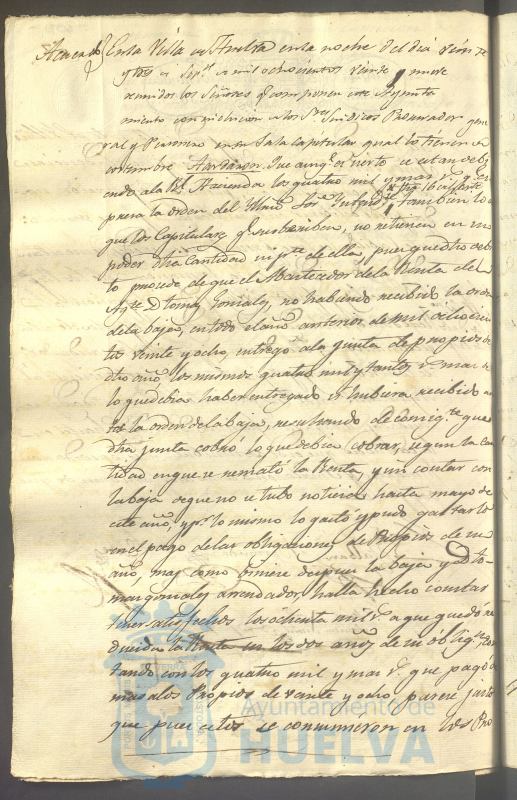 Acuerdo En la Villa de Huelva en la noche del dia veinte
y tres de Sepe. de mil ochocientos veinte y nueve
reunidos los Señores qe. componen este Ayunta
miento con citacion de los Sres. Sindicos Procurador gene
ral y Personero en su Sala capitular qual lo tienen de
costumbre Acordaron: Que aunqe. es cierto se estan deb
iendo a la Rl. Hacienda los quatro mil y mas rs. qe. en
presa la orden del Sor. Intend.te tambien lo es
que los Capitulares qe. subscriben, no retienen en su
poder dha cantidad ni pte. de ella, pues que dho debi
to procede de que el Rematador de la Renta del
Agte. D. Tomas Gonsales, no habiendo recibido la orden
de la baja, en todo el año anterior de mil ochocien
tos veinte y ocho, entregó a la Junta de propios de
dho año, los mismos quatro mil y tantos rs. mas de
lo que debia haber entregado si hubiera recibido an
tes la orden de la baja, resultando de consigte. que
dha junta cobró lo que debia cobrar, segun la can
tidad en que se remató la Renta y sin contar con
la baja de que no se tubo noticia hasta mayo de
este año, y pr. lo mismo lo gastó y pudo gastarlo
en el pago de las obligaciones de Propios de su
año, mas como viniese despues la baja y D. To-
mas gonsales arrendador halla hecho constar
tener satisfechos los ochenta mil rs. a que quedó re
ducida la Renta en los dos años de su obligon. con
tando con los quatro mil y mas rs. que pagó de
mas a los Propios de veinte y ocho, parece justo
que pues estos se consumieron en los Pro
Ayuntamiento de
HUELVA